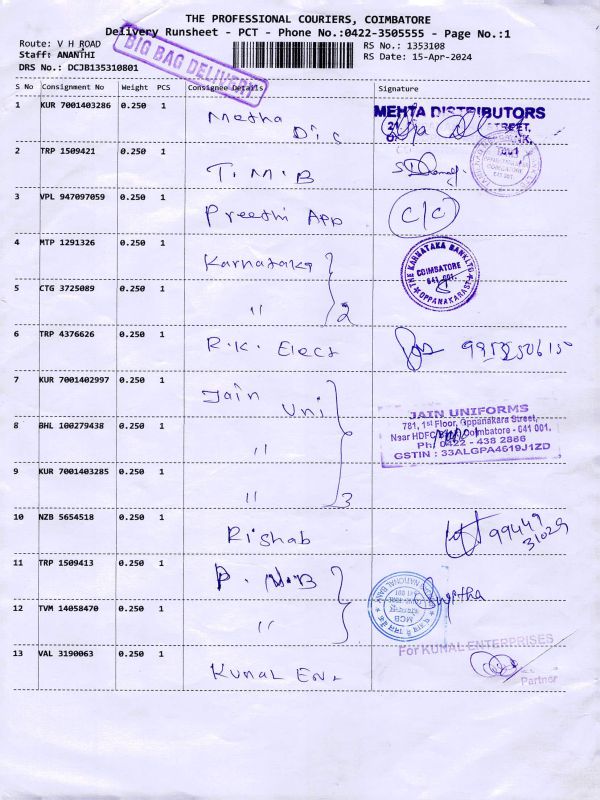 THE PROFESSIONAL COURIERS, COIMBATORE
Delivery Runsheet - PCT - Phone No.:0422-3505555 - Page No.:1
Route: V H ROAD
Staff: ANANTHI
DRS No.: DCJB135310801
BIG BAG DELIVERY
RS No.: 1353108
RS Date: 15-Apr-2024
S No Consignment No Weight PCS Consignee Details Signature
1 KUR 7001403286 0.250 1 Metha Dis
MEHTA DISTRIBUTORS
STREET,
2 TRP 1509421 0.250 1 T.M.B
3 VPL 947097059 0.250 1 Preethi App C/C
4 MTP 1291326 0.250 1 Karnataka
THE KARNATAKA BANK LTD
COIMBATORE
641 001.
OPPANAKARAST
5 CTG 3725089 0.250 1 " 2
6 TRP 4376626 0.250 1 R.K. Elect
7 KUR 7001402997 0.250 1 Jain Uni
JAIN UNIFORMS
781, 1st Floor, Oppanakara Street,
Near HDFC Coimbatore - 641 001.
Ph: 0422 - 438 2866
GSTIN : 33ALGPA4619J1ZD
8 BHL 100279438 0.250 1 "
9 KUR 7001403285 0.250 1 " 3
10 NZB 5654518 0.250 1 Rishab 99449
31029
11 TRP 1509413 0.250 1 P.N.B
MCB
12 TVM 14058470 0.250 1 "
13 VAL 3190063 0.250 1 Kunal Ent
For KUNAL ENTERPRISES
Partner